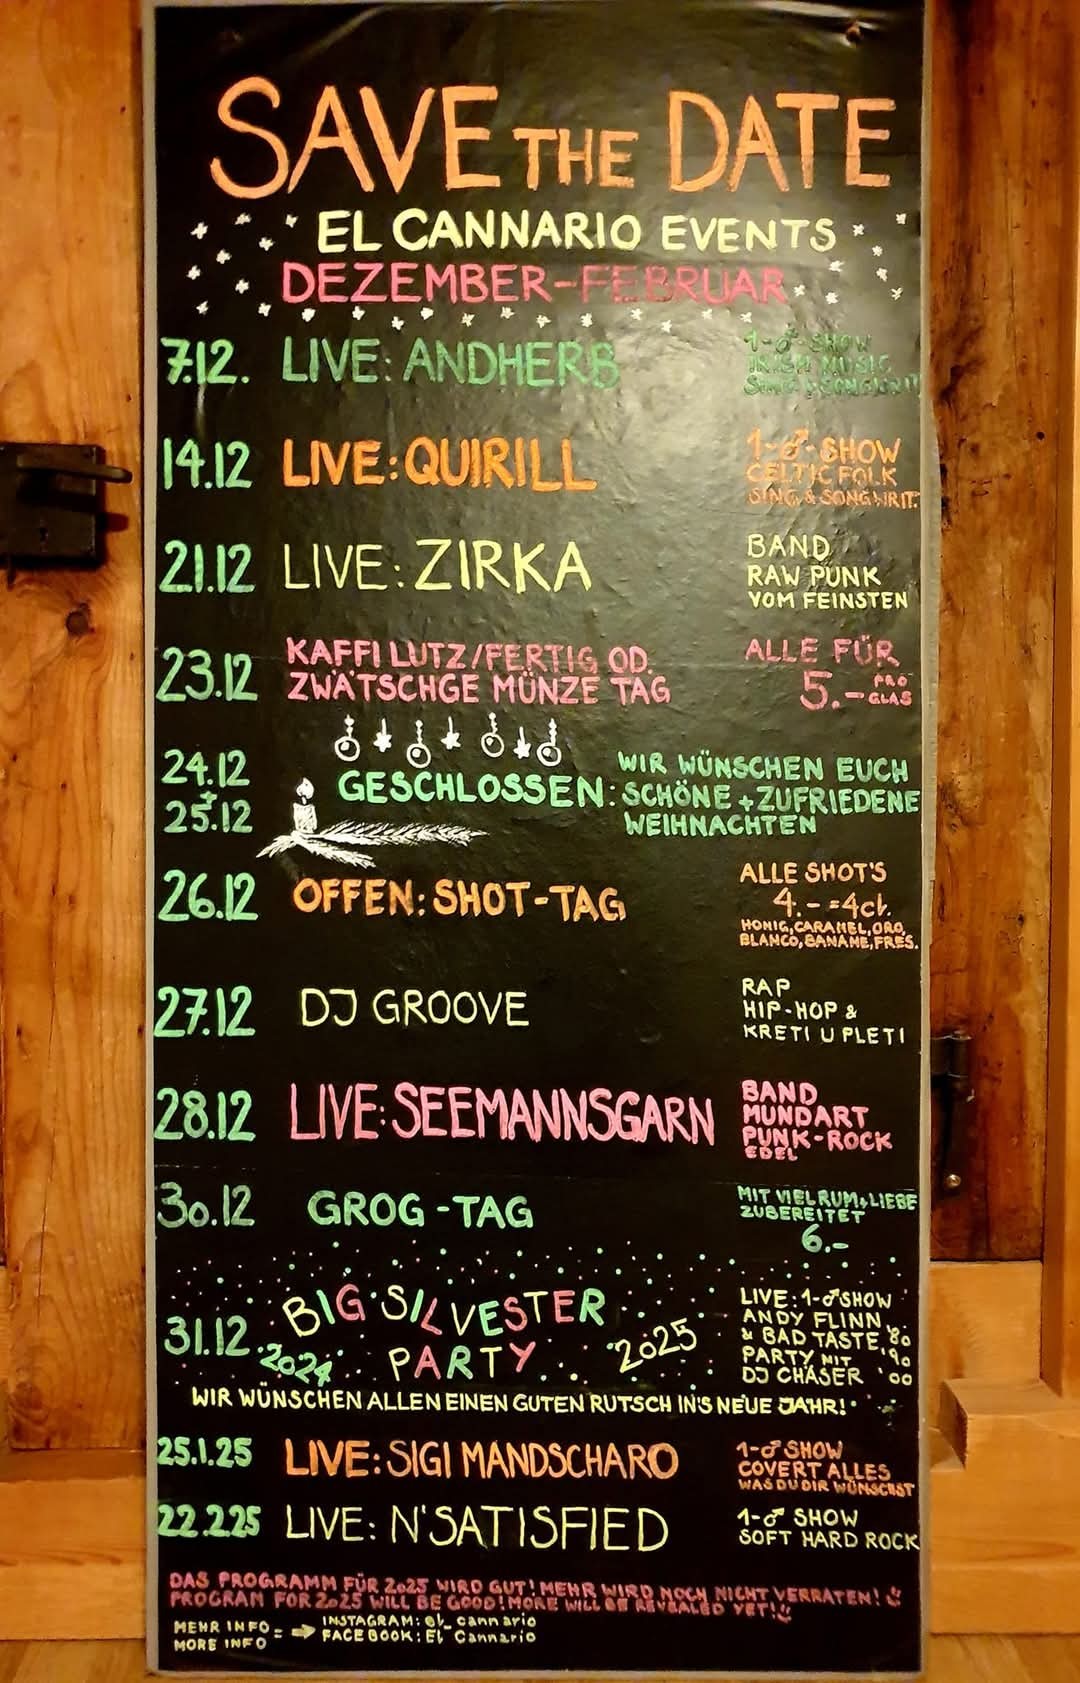 SAVE THE DATE
EL CANNARIO EVENTS
DEZEMBER-FEBRUAR
7.12. LIVE: ANDHERB
1-♂-SHOW
IRISH MUSIC
SING & SONGWRIT
14.12 LIVE: QUIRILL
1-♂-SHOW
CELTIC FOLK
SING. & SONGWRIT.
21.12 LIVE: ZIRKA
BAND
RAW PUNK
VOM FEINSTEN
23.12
KAFFI LUTZ/FERTIG OD.
ZWÄTSCHGE MÜNZE TAG
ALLE FÜR
5.- PRO GLAS
24.12
+
25.12
GESCHLOSSEN:
WIR WÜNSCHEN EUCH
SCHÖNE + ZUFRIEDENE
WEIHNACHTEN
26.12 OFFEN: SHOT-TAG
ALLE SHOT'S
4.- =4cl.
HONIG, CARAMEL, ORO,
BLANCO, BANANE, FRES.
27.12 DJ GROOVE
RAP
HIP-HOP &
KRETI U PLETI
28.12 LIVE: SEEMANNSGARN
BAND
MUNDART
PUNK-ROCK
EDEL
30.12 GROG-TAG
MIT VIEL RUM + LIEBE
ZUBEREITET
6.-
31.12
BIG SILVESTER
2024 PARTY 2025
LIVE: 1-♂SHOW
ANDY FLINN
& BAD TASTE '80
PARTY MIT '90
DJ CHÄSER '00
WIR WÜNSCHEN ALLEN EINEN GUTEN RUTSCH IN'S NEUE JAHR!
25.1.25 LIVE: SIGI MANDSCHARO
1-♂ SHOW
COVERT ALLES
WAS DU DIR WÜNSCHST
22.2.25 LIVE: N'SATISFIED
1-♂ SHOW
SOFT HARD ROCK
DAS PROGRAMM FÜR 2025 WIRD GUT! MEHR WIRD NOCH NICHT VERRATEN!
PROGRAM FOR 2025 WILL BE GOOD! MORE WILL BE REVEALED YET!
MEHR INFO
MORE INFO = →
INSTAGRAM: el_cannario
FACEBOOK: El Cannario